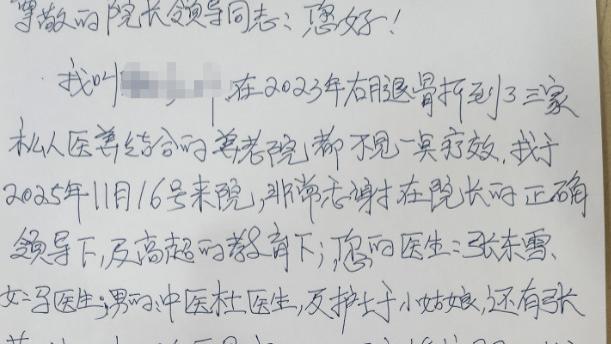 尊敬的院长领导同志：您好！
我叫 在2023年右腿骨折到了三家
私人医养结合的养老院都不见一点疗效，我于
2025年11月16号来院，非常感谢在院长的正确
领导下，及高超的教育下；您的医生：张东雪、
女：子医生；男的：中医杜医生，及护士于小姑娘，还有张